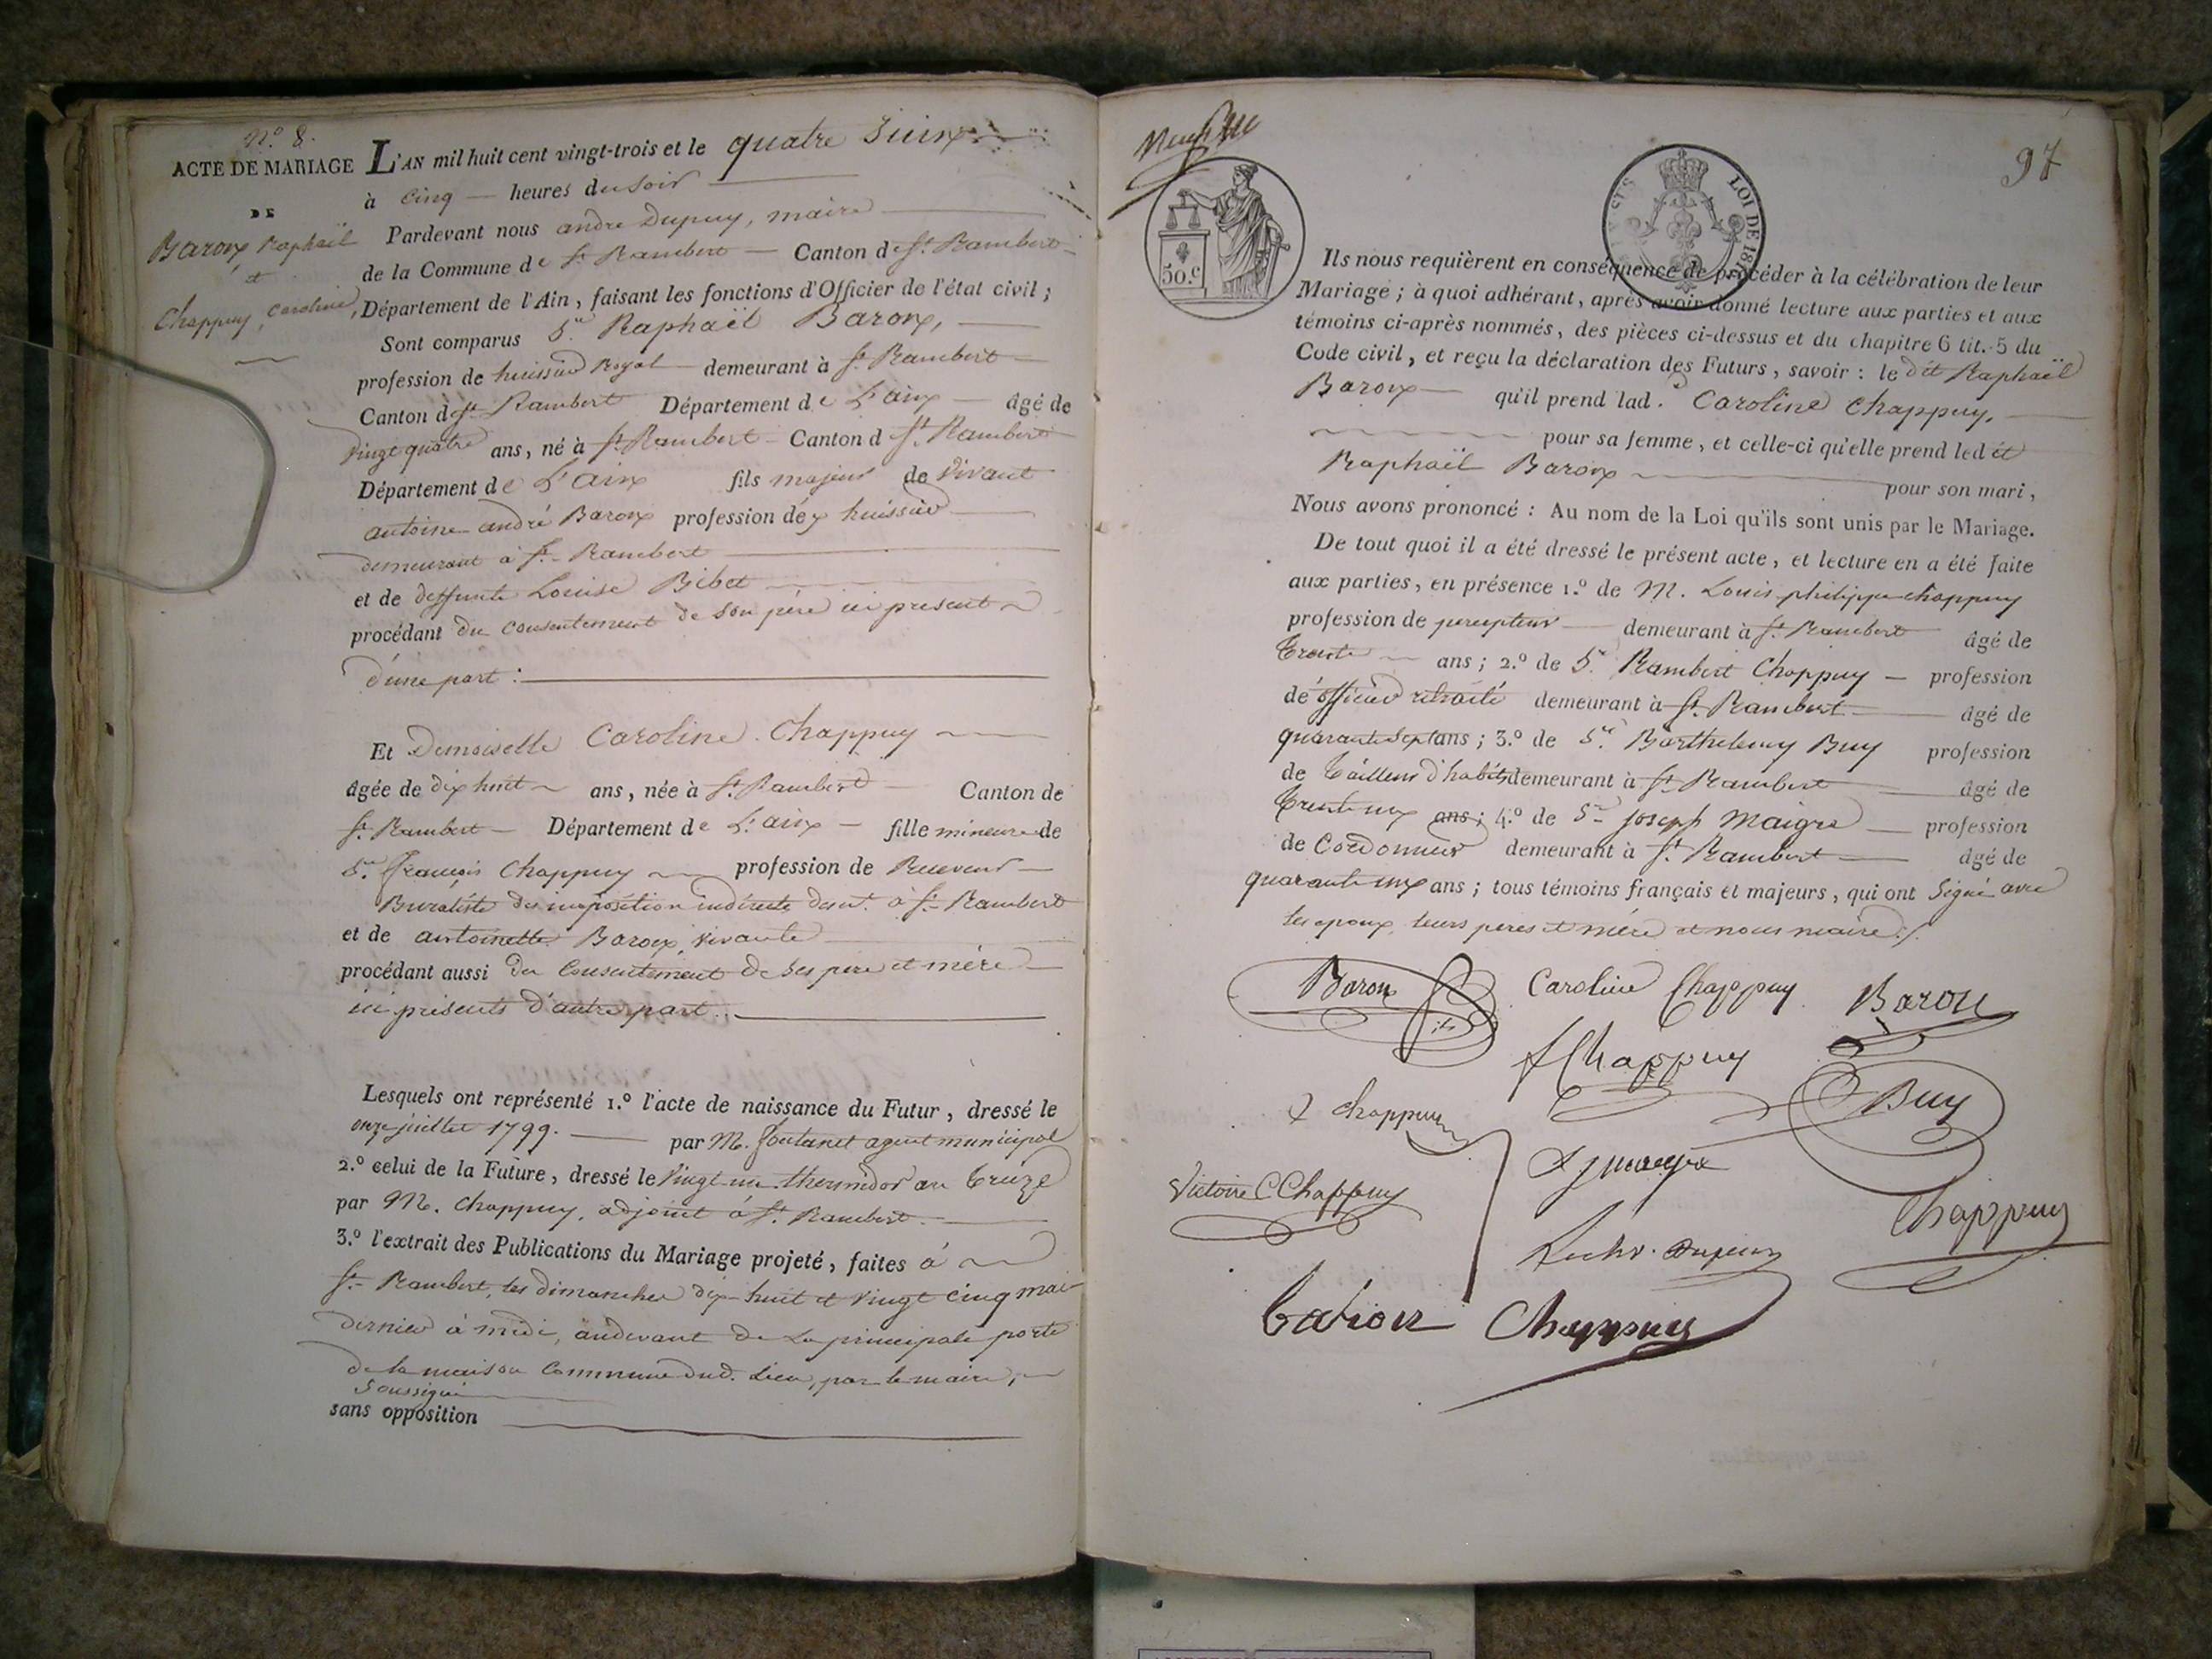 N.o 8.
ACTE DE MARIAGE
DE
Baron Raphaël
et
Chappuy, Caroline,
L'AN mil huit cent vingt-trois et le quatre Juin
à Cinq heures du Soir
Pardevant nous andre Dupuy, maire
de la Commune de St. Rambert Canton de St. Rambert
Département de l'Ain, faisant les fonctions d'Officier de l'état civil;
Sont comparus Sr. Raphaël Baron,
profession de huissier Royal demeurant à St. Rambert
Canton de St. Rambert Département de L'ain âgé de
Vingt quatre ans, né à St. Rambert Canton d St. Rambert
Département de L'ain fils majeur de vivant
antoine andré Baron profession de ex huissier
demeurant à St. Rambert
et de deffunte Louise Bibet
procédant du consentement de son père ici present
d'une part:
Et Demoiselle Caroline Chappuy
âgée de dix huit ans, née à St. Rambert Canton de
St. Rambert Département de L'ain fille mineure de
Sr. François Chappuy profession de Receveur
Buraliste des imposition indirecte demt. à St. Rambert
et de antoinette Baron, vivante
procédant aussi du Consentement de ses pere et mère
ici présents d'autre part..
Lesquels ont représenté 1.o l'acte de naissance du Futur, dressé le
onze juillet 1799. par M. fontanet agent municipal
2.o celui de la Future, dressé le Vingt un thermidor an treize
par M. Chappuy, adjoint à St. Rambert.
3.o l'extrait des Publications du Mariage projeté, faites à
St. Rambert, les dimanches dix-huit et vingt cinq mai
dernier à midi, audevant de la principale porte
de la maison Commune dud. lieu, par le maire,
soussigné
sans opposition
97
50.c
LOI DE 181
Ils nous requièrent en conséquence de procéder à la célébration de leur
Mariage; à quoi adhérant, après avoir donné lecture aux parties et aux
témoins ci-après nommés, des pièces ci-dessus et du chapitre 6 tit. 5 du
Code civil, et reçu la déclaration des Futurs, savoir: le dit Raphaël
Baron qu'il prend lad. Caroline Chappuy,
pour sa femme, et celle-ci qu'elle prend led it
Raphaël Baron
pour son mari,
Nous avons prononcé: Au nom de la Loi qu'ils sont unis par le Mariage.
De tout quoi il a été dressé le présent acte, et lecture en a été faite
aux parties, en présence 1.o de M. Louis philippe Chappuy
profession de percepteur demeurant à St. Rambert âgé de
Trente ans; 2.o de Sr. Rambert Chappuy profession
de officier retraité demeurant à St. Rambert âgé de
quarante sept ans; 3.o de Sr. Barthelemy Buy profession
de Tailleur d'habits demeurant à St. Rambert âgé de
Trente un ans; 4.o de Sr. joseph Maigre profession
de Cordonnier demeurant à St. Rambert âgé de
quarante un ans; tous témoins français et majeurs, qui ont Signé avec
les epoux, leurs peres et mére et nous maire./.
Baron fils Caroline Chappuy Baron
f Chappuy
Chappuy Buy
Victoire C Chappuy
Chappuy
Chappuy